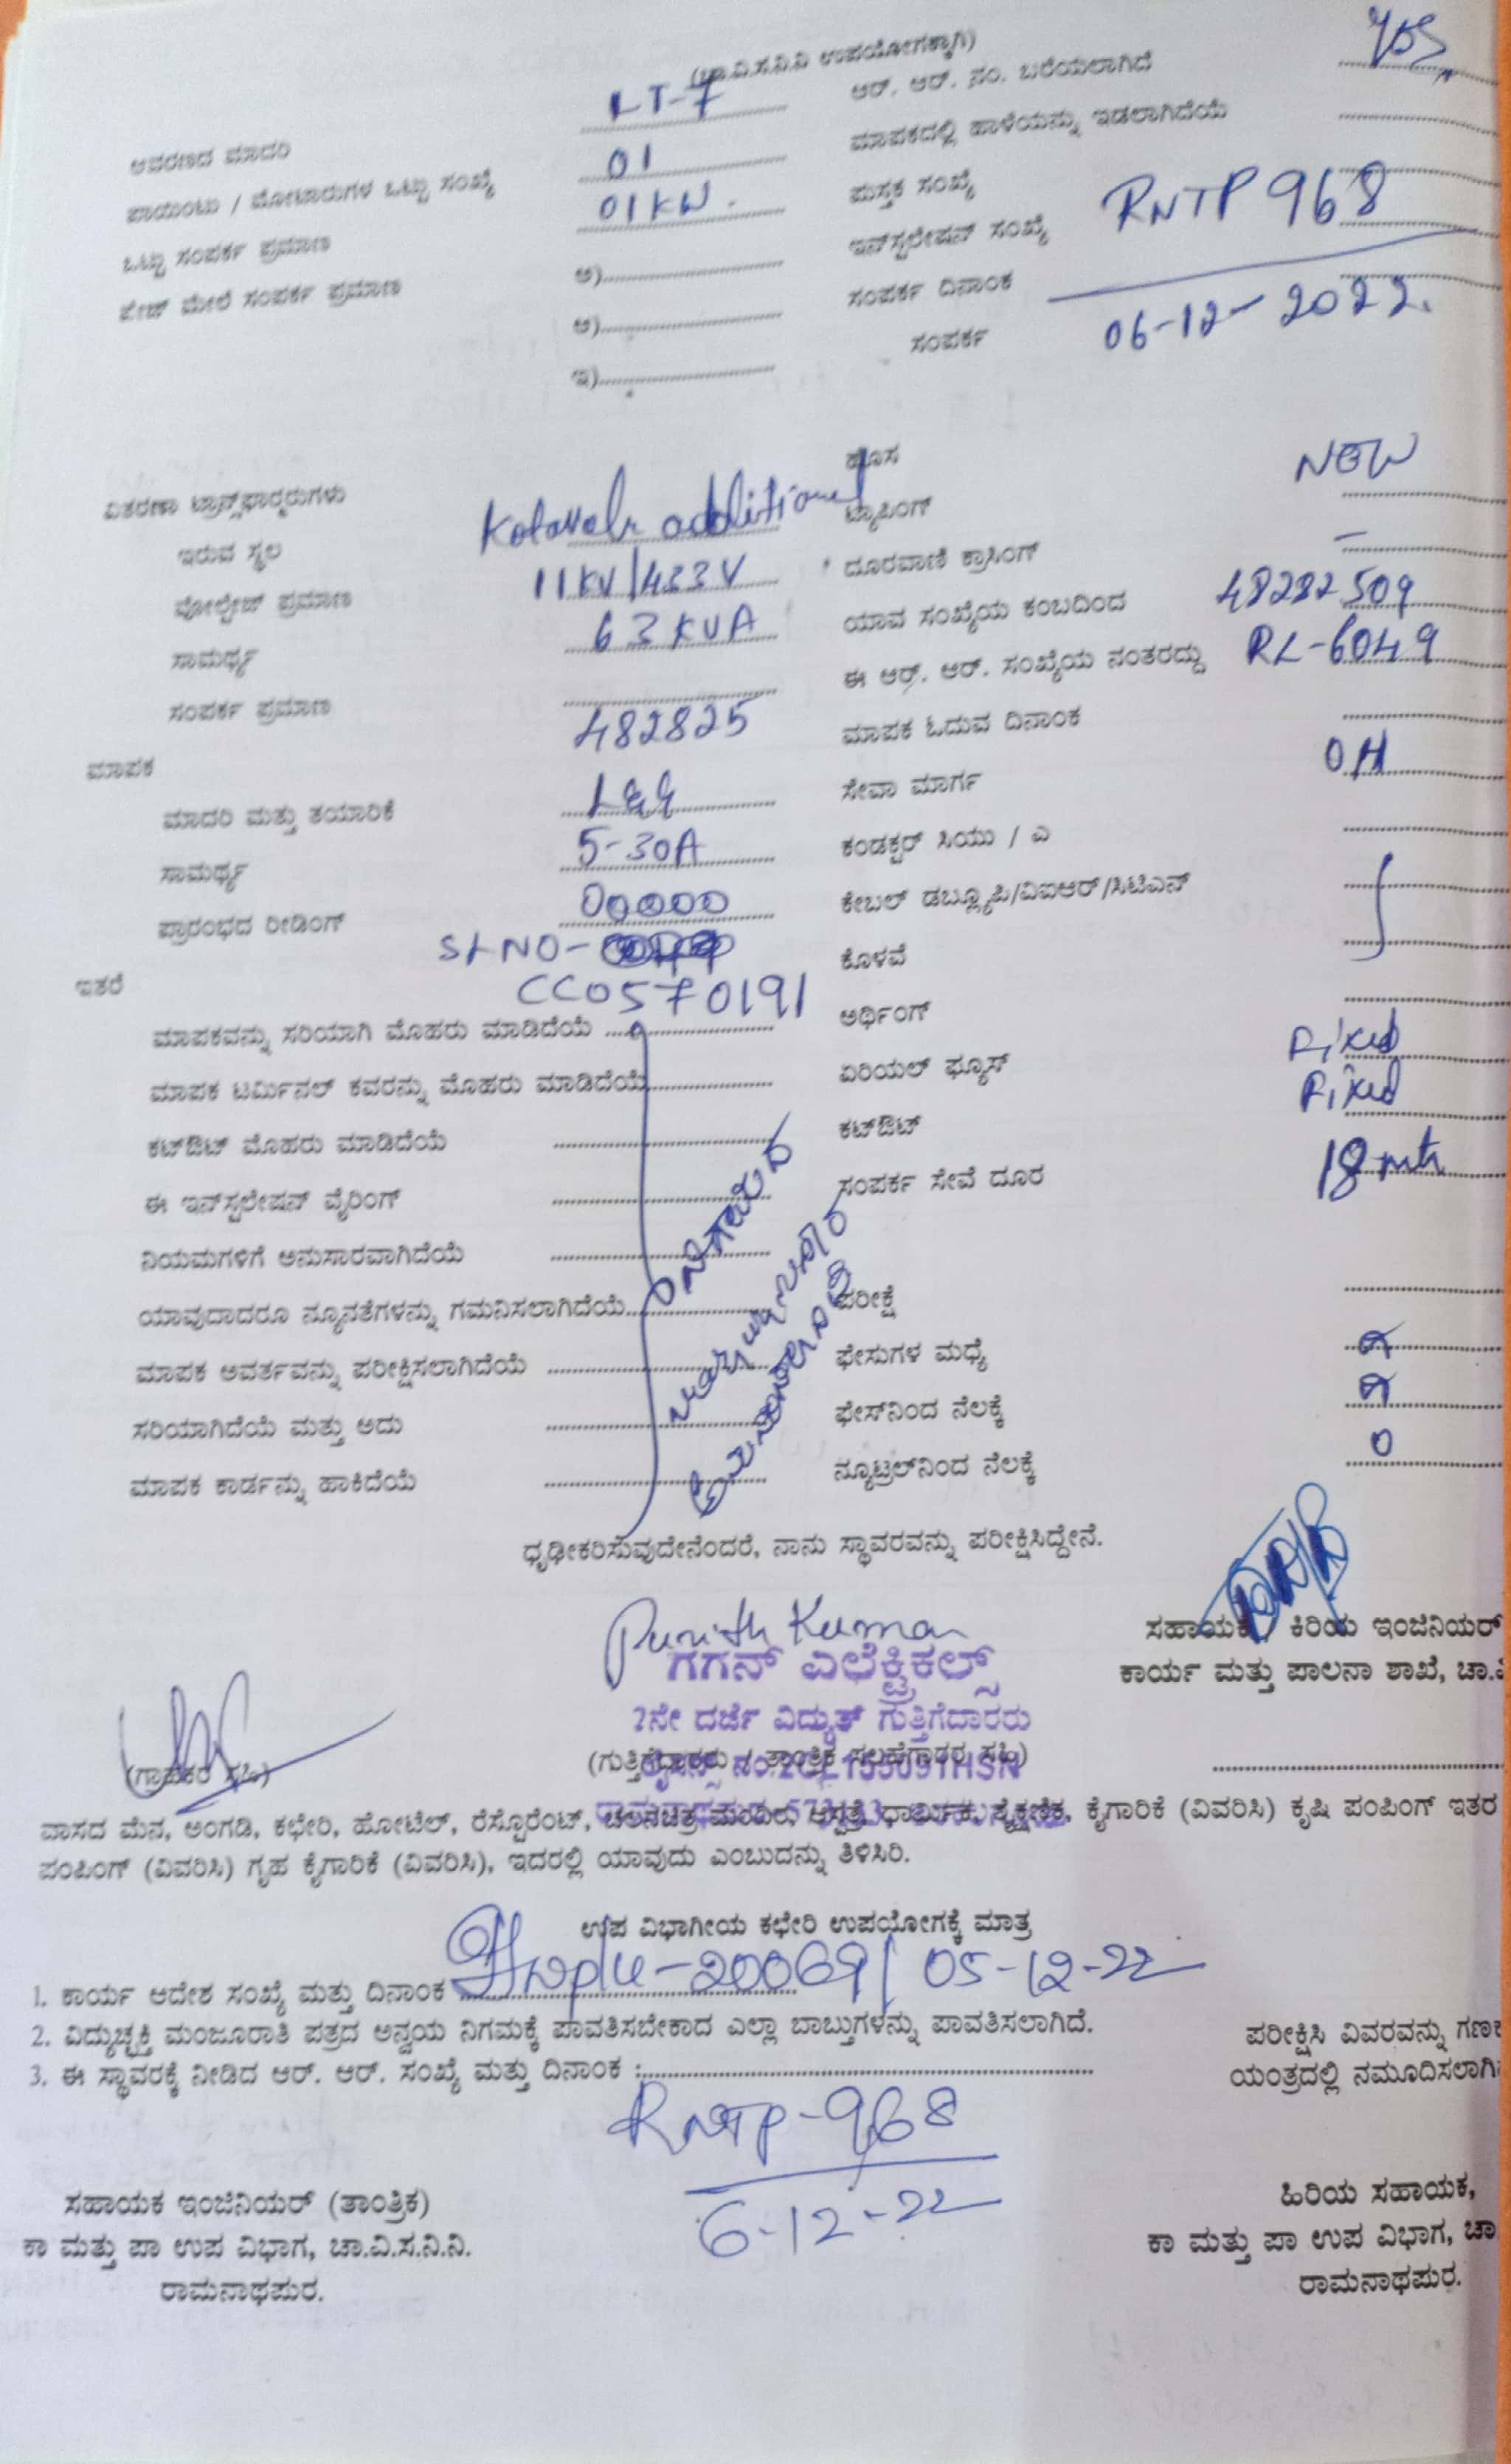 (ಚಾ.ವಿ.ಸ.ನಿ.ನಿ ಉಪಯೋಗಕ್ಕಾಗಿ)
ಆವರಣದ ಮಾದರಿ LT-7
ಪಾಯಿಂಟು / ಮೋಟಾರುಗಳ ಒಟ್ಟು ಸಂಖ್ಯೆ 01
ಒಟ್ಟು ಸಂಪರ್ಕ ಪ್ರಮಾಣ 01KW.
ಪೇಜ್ ಮೇಲೆ ಸಂಪರ್ಕ ಪ್ರಮಾಣ ಅ)
ಆ)
ಇ)
ಆರ್. ಆರ್. ನಂ. ಬರೆಯಲಾಗಿದೆ
ಮಾಪಕದಲ್ಲಿ ಹಾಳೆಯನ್ನು ಇಡಲಾಗಿದೆಯೆ
ಪುಸ್ತಕ ಸಂಖ್ಯೆ
ಇನ್‌ಸ್ಟಲೇಷನ್ ಸಂಖ್ಯೆ RNTP 968
ಸಂಪರ್ಕ ದಿನಾಂಕ 06-12-2022.
ಸಂಪರ್ಕ
ವಿತರಣಾ ಟ್ರಾನ್ಸ್‌ಫಾರ್ಮರುಗಳು
ಇರುವ ಸ್ಥಲ additional
ವೋಲ್ಟೇಜ್ ಪ್ರಮಾಣ 11KV/433V
ಸಾಮರ್ಥ್ಯ 63 KVA
ಸಂಪರ್ಕ ಪ್ರಮಾಣ
482825
ಮಾಪಕ
ಮಾದರಿ ಮತ್ತು ತಯಾರಿಕೆ
ಸಾಮರ್ಥ್ಯ 5-30A
ಪ್ರಾರಂಭದ ರೀಡಿಂಗ್ 00000
SLNO-
ಇತರೆ CC0570191
ಮಾಪಕವನ್ನು ಸರಿಯಾಗಿ ಮೊಹರು ಮಾಡಿದೆಯೆ
ಮಾಪಕ ಟರ್ಮಿನಲ್ ಕವರನ್ನು ಮೊಹರು ಮಾಡಿದೆಯೆ
ಕಟ್‌ಔಟ್ ಮೊಹರು ಮಾಡಿದೆಯೆ
ಈ ಇನ್‌ಸ್ಟಲೇಷನ್ ವೈರಿಂಗ್
ನಿಯಮಗಳಿಗೆ ಅನುಸಾರವಾಗಿದೆಯೆ
ಯಾವುದಾದರೂ ನ್ಯೂನತೆಗಳನ್ನು ಗಮನಿಸಲಾಗಿದೆಯೆ
ಮಾಪಕ ಅವರ್ತವನ್ನು ಪರೀಕ್ಷಿಸಲಾಗಿದೆಯೆ
ಸರಿಯಾಗಿದೆಯೆ ಮತ್ತು ಅದು
ಮಾಪಕ ಕಾರ್ಡನ್ನು ಹಾಕಿದೆಯೆ
ಹೊಸ NEW
ಟ್ಯಾಪಿಂಗ್ –
ದೂರವಾಣಿ ಕ್ರಾಸಿಂಗ್
ಯಾವ ಸಂಖ್ಯೆಯ ಕಂಬದಿಂದ 48282509
ಈ ಆರ್. ಆರ್. ಸಂಖ್ಯೆಯ ನಂತರದ್ದು RL-6049
ಮಾಪಕ ಓದುವ ದಿನಾಂಕ
ಸೇವಾ ಮಾರ್ಗ OH
ಕಂಡಕ್ಟರ್ ಸಿಯು / ಎ
ಕೇಬಲ್ ಡಬ್ಲ್ಯೂಪಿ/ವಿಐಆರ್/ಸಿಟಿಎನ್
ಕೊಳವೆ
ಅರ್ಥಿಂಗ್
ಏರಿಯಲ್ ಫ್ಯೂಸ್ Fixed
ಕಟ್‌ಔಟ್ Fixed
ಸಂಪರ್ಕ ಸೇವೆ ದೂರ 18 mtr
ಪರೀಕ್ಷೆ
ಫೇಸುಗಳ ಮಧ್ಯೆ
ಫೇಸ್‌ನಿಂದ ನೆಲಕ್ಕೆ
ನ್ಯೂಟ್ರಲ್‌ನಿಂದ ನೆಲಕ್ಕೆ 0
ಧೃಢೀಕರಿಸುವುದೇನೆಂದರೆ, ನಾನು ಸ್ಥಾವರವನ್ನು ಪರೀಕ್ಷಿಸಿದ್ದೇನೆ.
Punith Kumar
ಗಗನ್ ಎಲೆಕ್ಟ್ರಿಕಲ್ಸ್
2ನೇ ದರ್ಜೆ ವಿದ್ಯುತ್ ಗುತ್ತಿಗೆದಾರರು
ಸಹಾಯಕ / ಕಿರಿಯ ಇಂಜಿನಿಯರ್
ಕಾರ್ಯ ಮತ್ತು ಪಾಲನಾ ಶಾಖೆ,
(ಗ್ರಾಹಕರ ಸಹಿ)
(ಗುತ್ತಿಗೆದಾರರು / ತಾಂತ್ರಿಕ ಸಲಹೆಗಾರರ ಸಹಿ)
ವಾಸದ ಮೆನ, ಅಂಗಡಿ, ಕಛೇರಿ, ಹೋಟೆಲ್, ರೆಸ್ಟೊರೆಂಟ್, ಚಲನಚಿತ್ರ ಮಂದಿರ, ಆಸ್ಪತ್ರೆ ಧಾರ್ಮಿಕ, ಶೈಕ್ಷಣಿಕ, ಕೈಗಾರಿಕೆ (ವಿವರಿಸಿ) ಕೃಷಿ ಪಂಪಿಂಗ್ ಇತರ
ಪಂಪಿಂಗ್ (ವಿವರಿಸಿ) ಗೃಹ ಕೈಗಾರಿಕೆ (ವಿವರಿಸಿ), ಇದರಲ್ಲಿ ಯಾವುದು ಎಂಬುದನ್ನು ತಿಳಿಸಿರಿ.
ಉಪ ವಿಭಾಗೀಯ ಕಛೇರಿ ಉಪಯೋಗಕ್ಕೆ ಮಾತ್ರ
1. ಕಾರ್ಯ ಆದೇಶ ಸಂಖ್ಯೆ ಮತ್ತು ದಿನಾಂಕ 20069/ 05-12-22
2. ವಿದ್ಯುಚ್ಛಕ್ತಿ ಮಂಜೂರಾತಿ ಪತ್ರದ ಅನ್ವಯ ನಿಗಮಕ್ಕೆ ಪಾವತಿಸಬೇಕಾದ ಎಲ್ಲಾ ಬಾಬ್ತುಗಳನ್ನು ಪಾವತಿಸಲಾಗಿದೆ.
3. ಈ ಸ್ಥಾವರಕ್ಕೆ ನೀಡಿದ ಆರ್. ಆರ್. ಸಂಖ್ಯೆ ಮತ್ತು ದಿನಾಂಕ :
ಪರೀಕ್ಷಿಸಿ ವಿವರವನ್ನು
ಯಂತ್ರದಲ್ಲಿ
RNTP-968
6-12-22
ಸಹಾಯಕ ಇಂಜಿನಿಯರ್ (ತಾಂತ್ರಿಕ)
ಕಾ ಮತ್ತು ಪಾ ಉಪ ವಿಭಾಗ, ಚಾ.ವಿ.ಸ.ನಿ.ನಿ.
ರಾಮನಾಥಪುರ.
ಹಿರಿಯ ಸಹಾಯಕ,
ಕಾ ಮತ್ತು ಪಾ ಉಪ ವಿಭಾಗ, ಚಾ
ರಾಮನಾಥಪುರ.